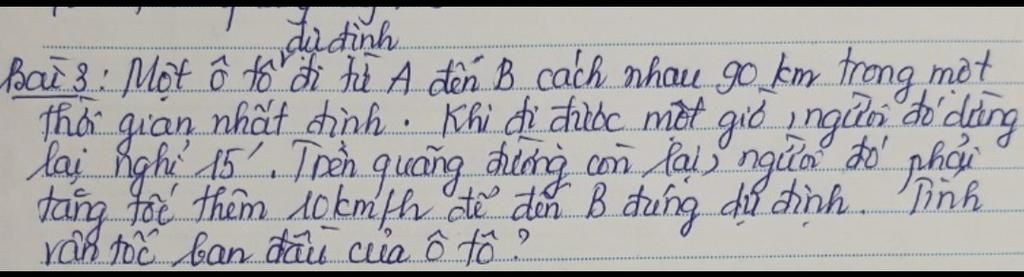 dự định
Bài 3: Một ô tô đi từ A đến B cách nhau 90 km trong một
thời gian nhất định. Khi đi được một giờ, người đó dừng
lại nghỉ 15'. Trên quãng đường còn lại, người đó phải
tăng tốc thêm 10km/h để đến B đúng dự định. Tính
vận tốc ban đầu của ô tô?